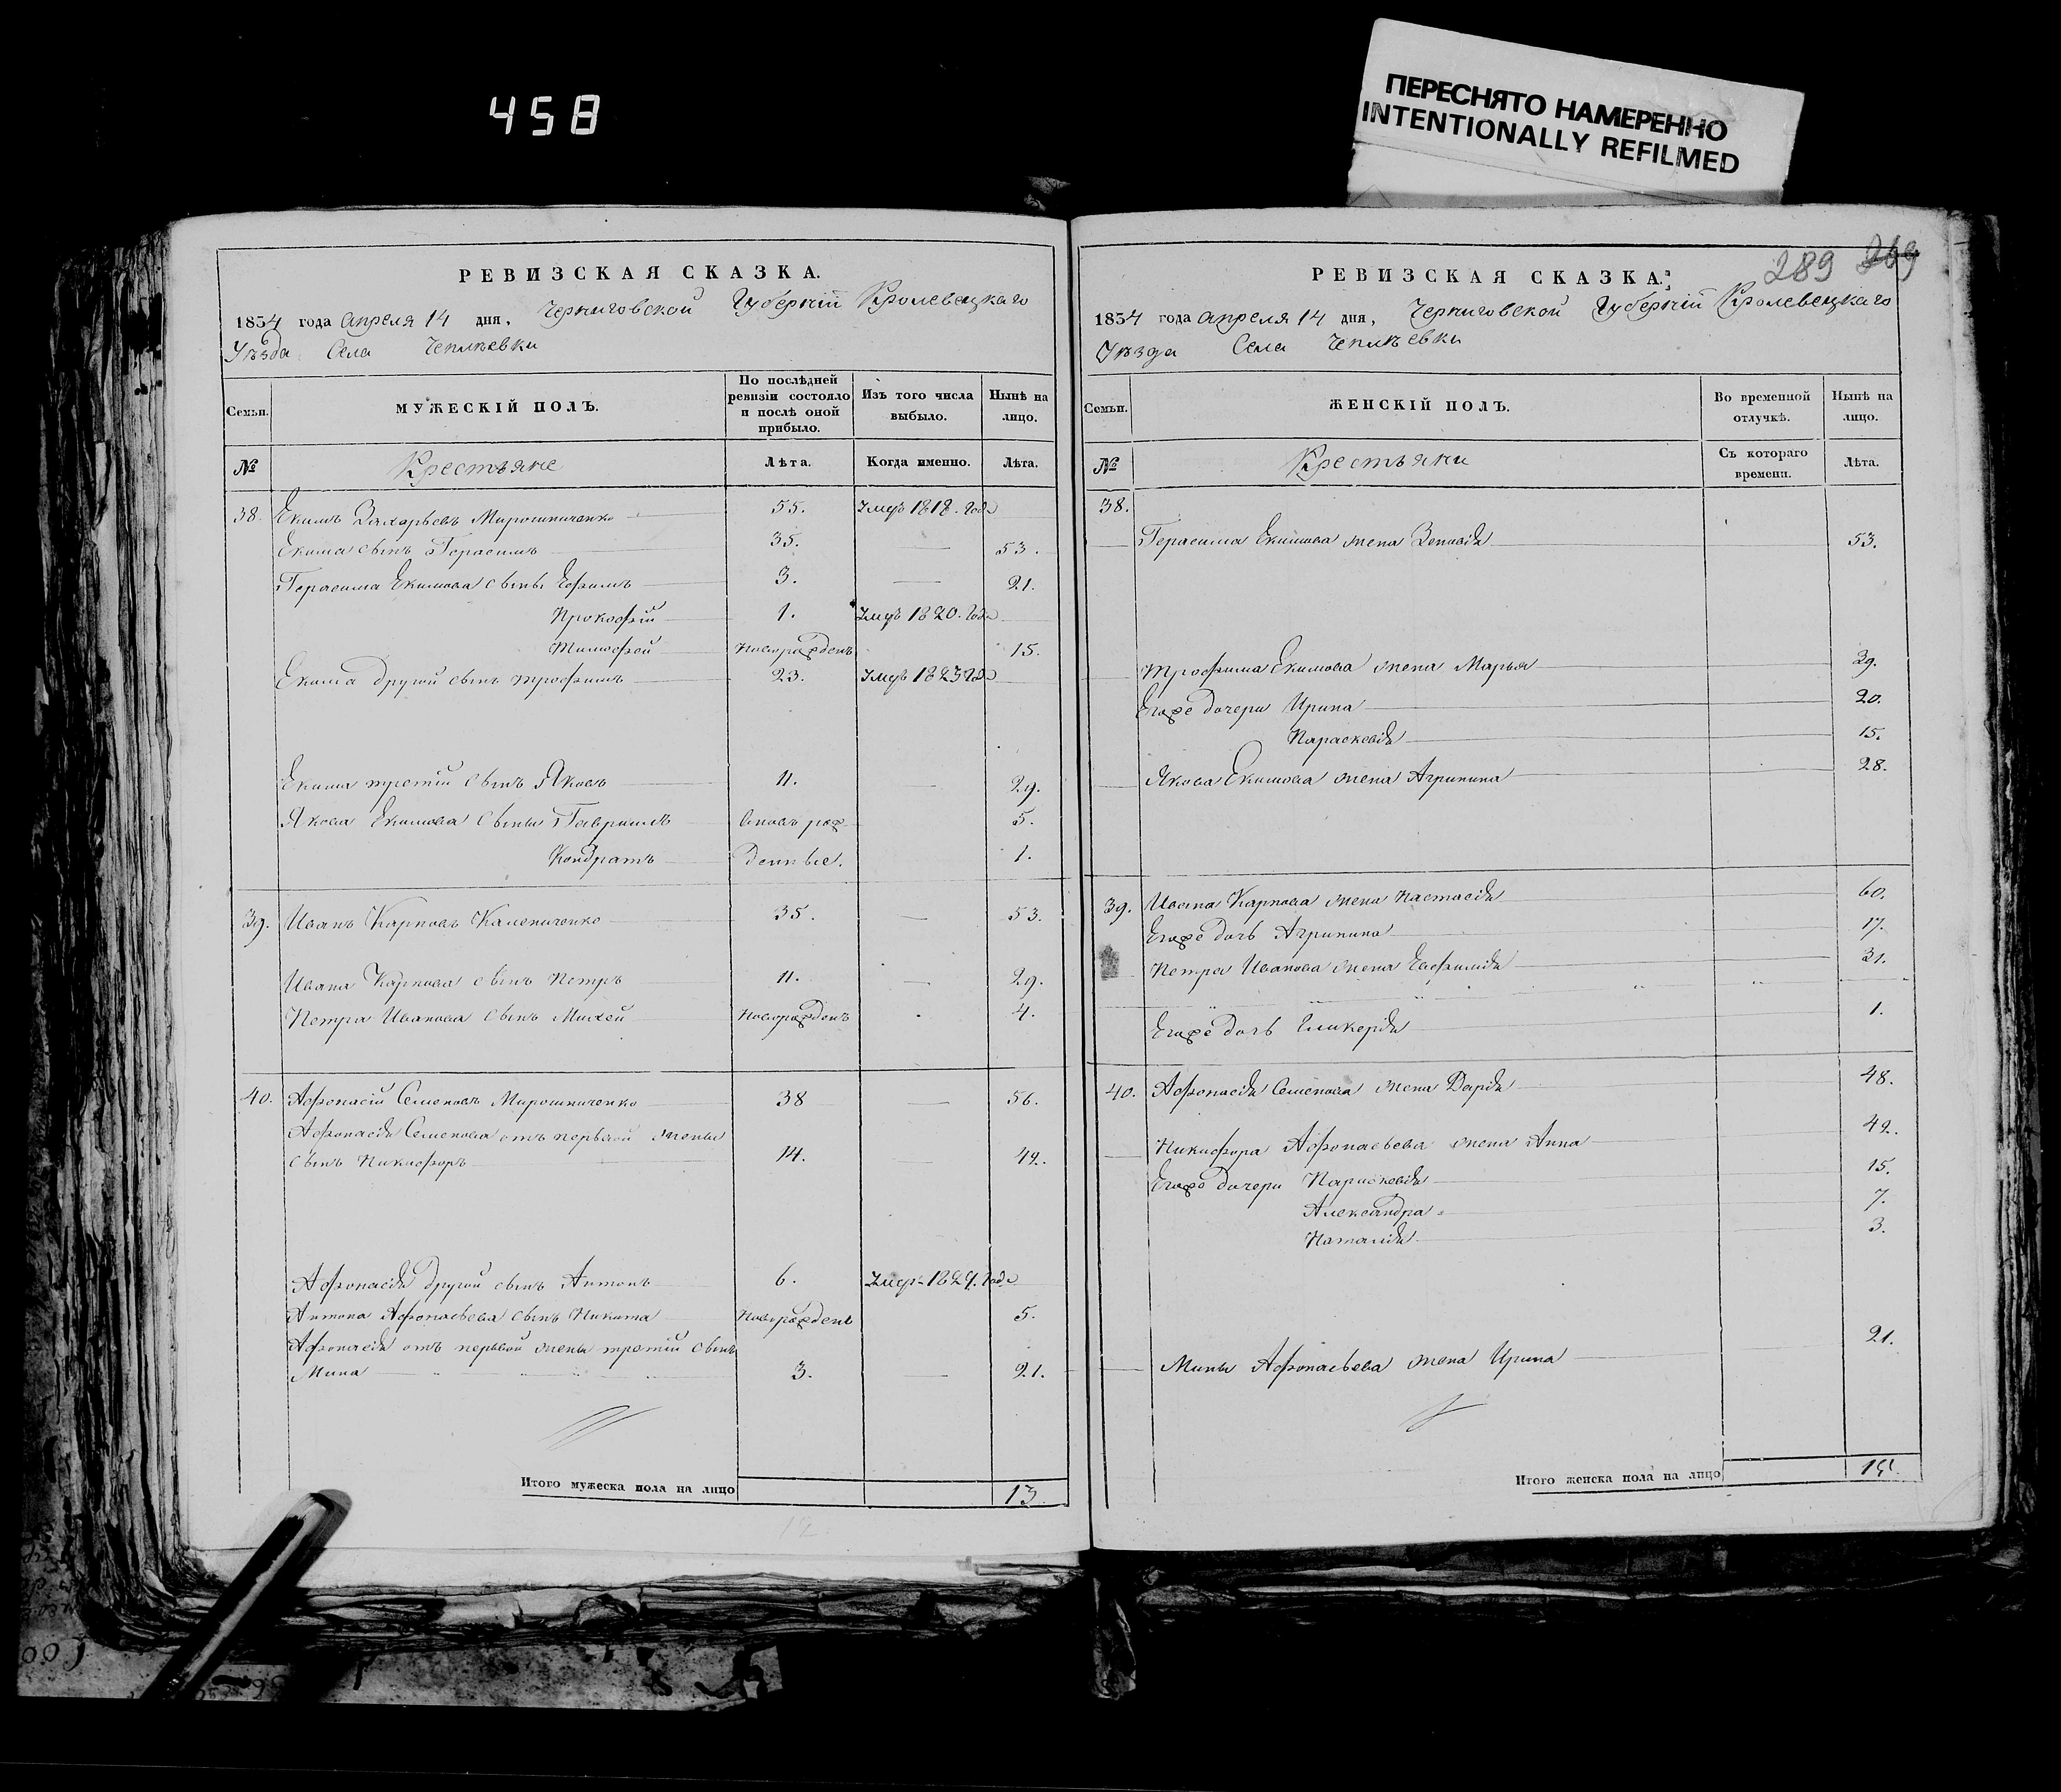 458
ПЕРЕСНЯТО НАМЕРЕННО
INTENTIONALLY REFILMED
РЕВИЗСКАЯ СКАЗКА.
1834 года апреля 14 дня, Черниговской Губерніи Кролевецкаго
Уѣзда Села Чепліевки
Семьи.
МУЖЕСКІЙ ПОЛЪ.
По послѣдней ревизіи состояло и послѣ оной прибыло.
Изъ того числа выбыло.
Нынѣ на лицо.
№ Крестьяне Лѣта. Когда именно. Лѣта.
38. Екимъ Захарьевъ Мирошниченко 55. Умеръ 1818. года
Екима сынъ Герасимъ 35. 53.
Герасима Екимова сыны Ефимъ 3. 21.
Прокофій 1. Умеръ 1820. года
Тимофей новорожденъ 15.
Екима другой сынъ Трофимъ 23. Умеръ 1823 года
Екима третій сынъ Яковъ 11. 29.
Якова Екимова сыны Гавриилъ вновь рож- 5.
Кондратъ денные. 1.
39. Иванъ Карповъ Калениченко 35. 53.
Ивана Карпова сынъ Петръ 11. 29.
Петра Иванова сынъ Михей новорожденъ 4.
40. Афонасій Семеновъ Мирошниченко 38 56.
Афонасія Семенова отъ первой жены
сынъ Никифоръ 14. 42.
Афонасія другой сынъ Антонъ 6. Умеръ 1829. года
Антона Афонасьева сынъ Никита новорожденъ 5.
Афонасія отъ первой жены третій сынъ
Мина 3. 21.
Итого мужеска пола на лицо 13
12
289 269
РЕВИЗСКАЯ СКАЗКА.
1834 года апреля 14 дня, Черниговской Губерніи Кролевецкаго
Уѣзда Села Чепліевки
Семьи.
ЖЕНСКІЙ ПОЛЪ.
Во временной отлучкѣ.
Нынѣ на лицо.
№ Крестьяни Съ котораго времени. Лѣта.
38.
Герасима Екимова жена Зеновія 53.
Трофима Екимова жена Марья 39.
Егоже дочери Ирина 20.
Параскевія 15.
Якова Екимова жена Агрипина 28.
39. Ивана Карпова жена Настасія 60.
Егоже дочь Агрипина 17.
Петра Иванова жена Евфимія 31.
Егоже дочь Гликерія 1.
40. Афонасія Семенова жена Дарія 48.
Никифора Афонасьева жена Анна 42.
Егоже дочери Параскевія 15.
Александра 7.
Наталія 3.
Мины Афонасьева жена Ирина 21.
Итого женска пола на лицо